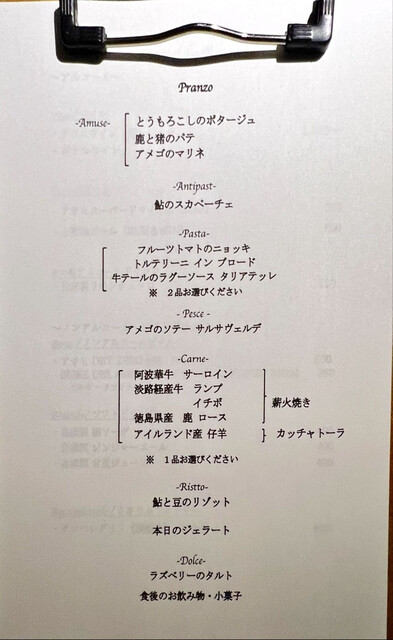 Pranzo
-Amuse-
とうもろこしのポタージュ
鹿と猪のパテ
アメゴのマリネ
-Antipast-
鮎のスカペーチェ
-Pasta-
フルーツトマトのニョッキ
トルテリーニ イン ブロード
牛テールのラグーソース タリアテッレ
※ 2品お選びください
- Pesce -
アメゴのソテー サルサヴェルデ
-Carne-
阿波華牛 サーロイン
淡路経産牛 ランプ
イチボ
薪火焼き
徳島県産 鹿 ロース
アイルランド産 仔羊 カッチャトーラ
※ 1品お選びください
-Ristto-
鮎と豆のリゾット
本日のジェラート
-Dolce-
ラズベリーのタルト
食後のお飲み物・小菓子